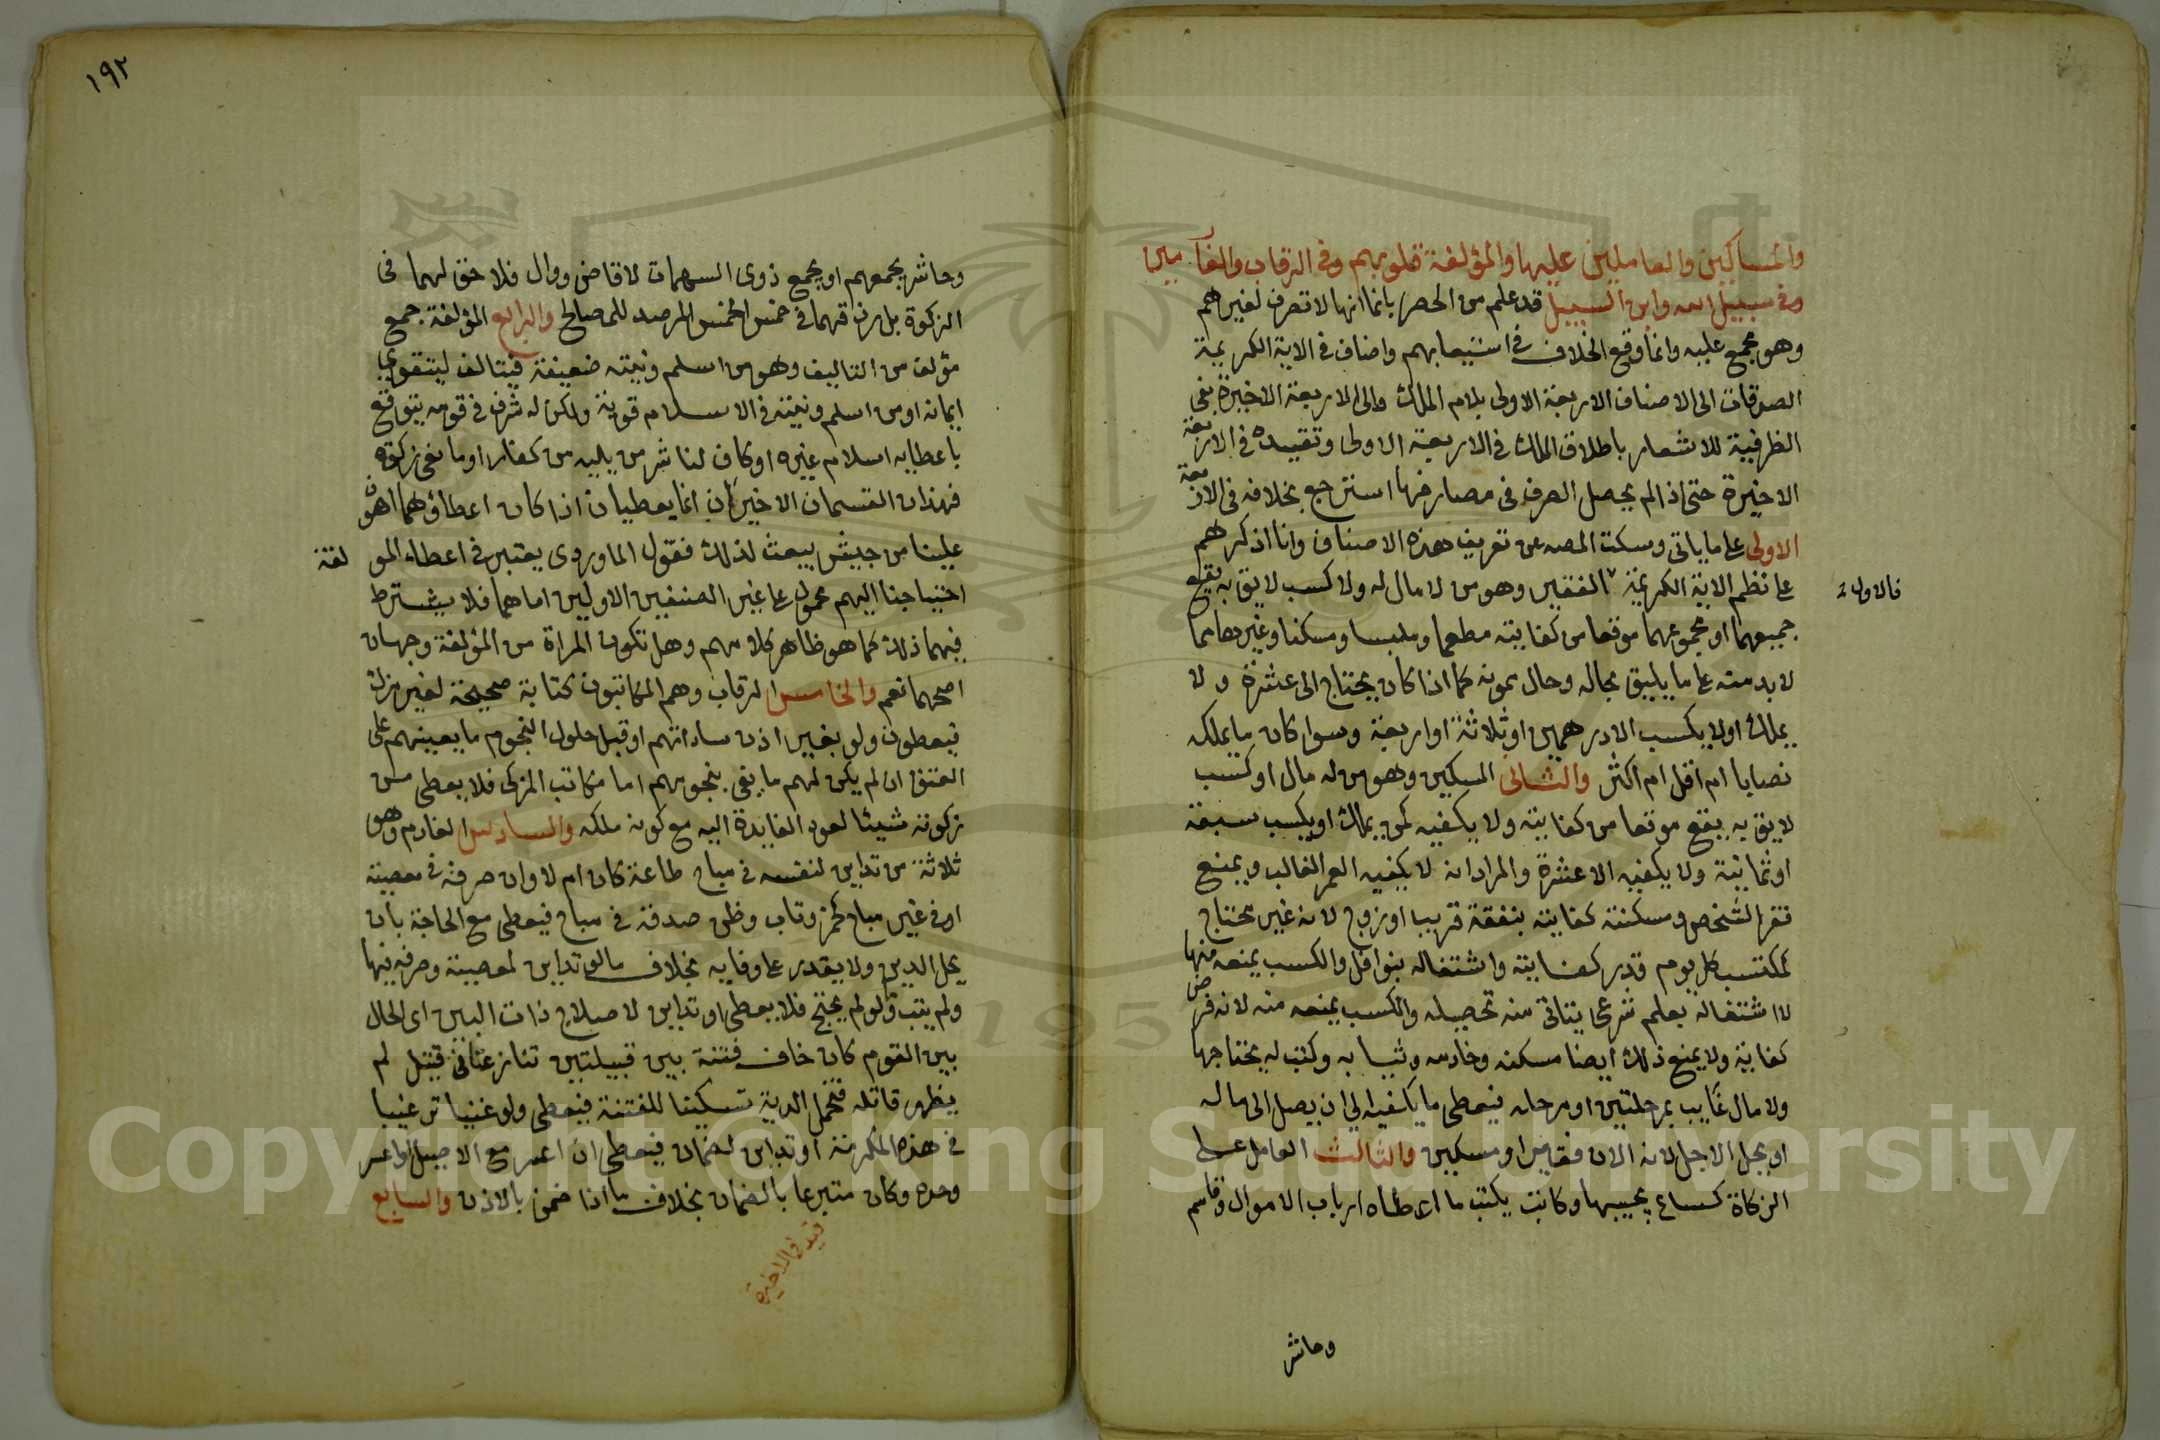 والمساكين والعاملين عليها والمؤلفة قلوبهم وفي الرقاب والغارمين
وفي سبيل الله وابن السبيل قد علم من الحصر بانما انها لا تصرف لغيرهم
وهو مجمع عليه وانما وقع الخلاف في استيعابهم واضاف في الاية الكريمة
الصدقات الى الاصناف الاربعة الاولى بلام الملك والى الاربعة الاخيرة بفي
الظرفية للاشعار باطلاق الملك في الاربعة الاولى وتقييده في الاربعة
الاخيرة حتى اذا لم يحصل الصرف في مصارفها استرجع بخلافه في الاربعة
الاولى على ما ياتي وسكت المصه عن تعريف هذه الاصناف وانا اذكرهم
على نظم الاية الكريمة الفقير وهو من لا مال له ولا كسب لايق به يقع
فالاول
جميعهما او مجموعهما موقعا من كفايته مطعما وملبسا ومسكنا وغيرها مما
لا بد منه على ما يليق بحاله وحال ممونه كما اذا كان يحتاج الى عشرة ولا
يملك او لا يكسب الا درهمين او ثلاثة او اربعة وسوا كان ما يملكه
نصابا ام اقل ام اكثر والثاني المسكين وهو من له مال او كسب
لايق به يقع موقعا من كفايته ولا يكفيه كمن يملك او يكسب سبعة
او ثمانية ولا يكفيه الا عشرة والمراد انه لا يكفيه العمر الغالب ويمنع
فقر الشخص ومسكنته كفايته بنفقة قريب او زوج لانه غير محتاج
كمكتسب كل يوم قدر كفايته واشتغاله بنوافل والكسب يمنعه منها
لا اشتغاله بعلم شرعي يتاتى منه تحصيله والكسب يمنعه منه لانه فرض
كفاية ولا يمنع ذلك ايضا مسكنه وخادمه وثيابه وكتب له يحتاجها
ولا مال غايب بمرحلتين او مرحله فيعطى ما يكفيه الى ان يصل الى ماله
او يحل الاجل لانه الان فقير او مسكين والثالث العامل على
الزكاة كساع يجيبها وكاتب يكتب ما اعطاه ارباب الاموال وقاسم
وحاشر
١٩٢
وحاشر يجمعهم او يجمع ذوي السهمات لا قاض ووال فلا حق لهما في
الزكوة بل رزقهما في خمس الخمس المرصد للمصالح والرابع المؤلفة جمع
مؤلف من التاليف وهو من اسلم ونيته ضعيفة فيتالف ليتقوى
ايمانه او من اسلم ونيته في الاسلام قوية ولكن له شرف في قومه يتوقع
باعطايه اسلام غيره او كاف لنا شر من يليه من كفار او مانعي زكوة
فهذان القسمان الاخيران انما يعطيان اذا كان اعطاؤهما اهون
علينا من جيش يبعث لذلك فقول الماوردي يعتبر في اعطاء المو
لفة
احتياجنا اليهم محمول على غير الصنفين الاولين اما هما فلا يشترط
فيهما ذلك كما هو ظاهر كلامهم وهل تكون المراة من المؤلفة وجهان
اصحهما نعم والخامس الرقاب وهم المكاتبون كتابة صحيحة لغير مزك
فيعطون ولو بغير اذن ساداتهم او قبل حلول النجوم ما يعينهم على
العتق ان لم يكن لهم ما يفي بنجومهم اما مكاتب المزكي فلا يعطى من
زكوته شيئا لعود الفايدة اليه مع كونه ملكه والسادس الغارم وهو
ثلاثة من تداين لنفسه في مباح طاعة كان ام لا وان صرفه في معصية
او في غير مباح كخمر وتاب وظن صدقه في مباح فيعطى مع الحاجة بان
يحل الدين ولا يقدر على وفايه بخلاف ما لو تداين لمعصية وصرفه فيها
ولم يتب ولو لم يحتج فلا يعطى او تداين لاصلاح ذات البين اي الحال
بين القوم كان خاف فتنة بين قبيلتين تنازعتا في قتيل لم
يظهر قاتله فتحمل الدية تسكينا للفتنة فيعطى ولو غنيا ترغيبا
في هذه المكرمة او تداين لضمان فيعطى ان اعسر مع الاصيل او اعسر
وحده وكان متبرعا بالضمان بخلاف ما اذا ضمن بالاذن والسابع
قيد في الاخيرة
Copyright © King Saud University
1957